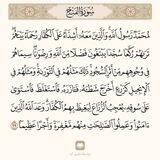 سُورَةُ الفَتْحِ
مُّحَمَّدٌ رَّسُولُ ٱللَّهِ وَٱلَّذِينَ مَعَهُۥٓ أَشِدَّآءُ عَلَى ٱلْكُفَّارِ رُحَمَآءُ بَيْنَهُمْۖ
تَرَىٰهُمْ رُكَّعًا سُجَّدًا يَبْتَغُونَ فَضْلًا مِّنَ ٱللَّهِ وَرِضْوَٰنًاۖ سِيمَاهُمْ
فِي وُجُوهِهِم مِّنْ أَثَرِ ٱلسُّجُودِۚ ذَٰلِكَ مَثَلُهُمْ فِي ٱلتَّوْرَىٰةِۚ وَمَثَلُهُمْ فِي
ٱلْإِنجِيلِ كَزَرْعٍ أَخْرَجَ شَطْـَٔهُۥ فَـَٔازَرَهُۥ فَٱسْتَغْلَظَ فَٱسْتَوَىٰ
عَلَىٰ سُوقِهِۦ يُعْجِبُ ٱلزُّرَّاعَ لِيَغِيظَ بِهِمُ ٱلْكُفَّارَۗ وَعَدَ ٱللَّهُ ٱلَّذِينَ
ءَامَنُوا۟ وَعَمِلُوا۟ ٱلصَّٰلِحَٰتِ مِنْهُم مَّغْفِرَةً وَأَجْرًا عَظِيمًۢا ٢٩